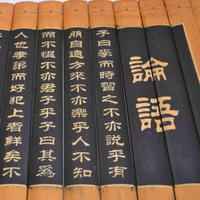 論語
子曰學而時習之不亦說乎有
朋自遠方來不亦樂乎人不知
而不慍不亦君子乎子曰其爲
人也孝弟而好犯上者鮮矣不